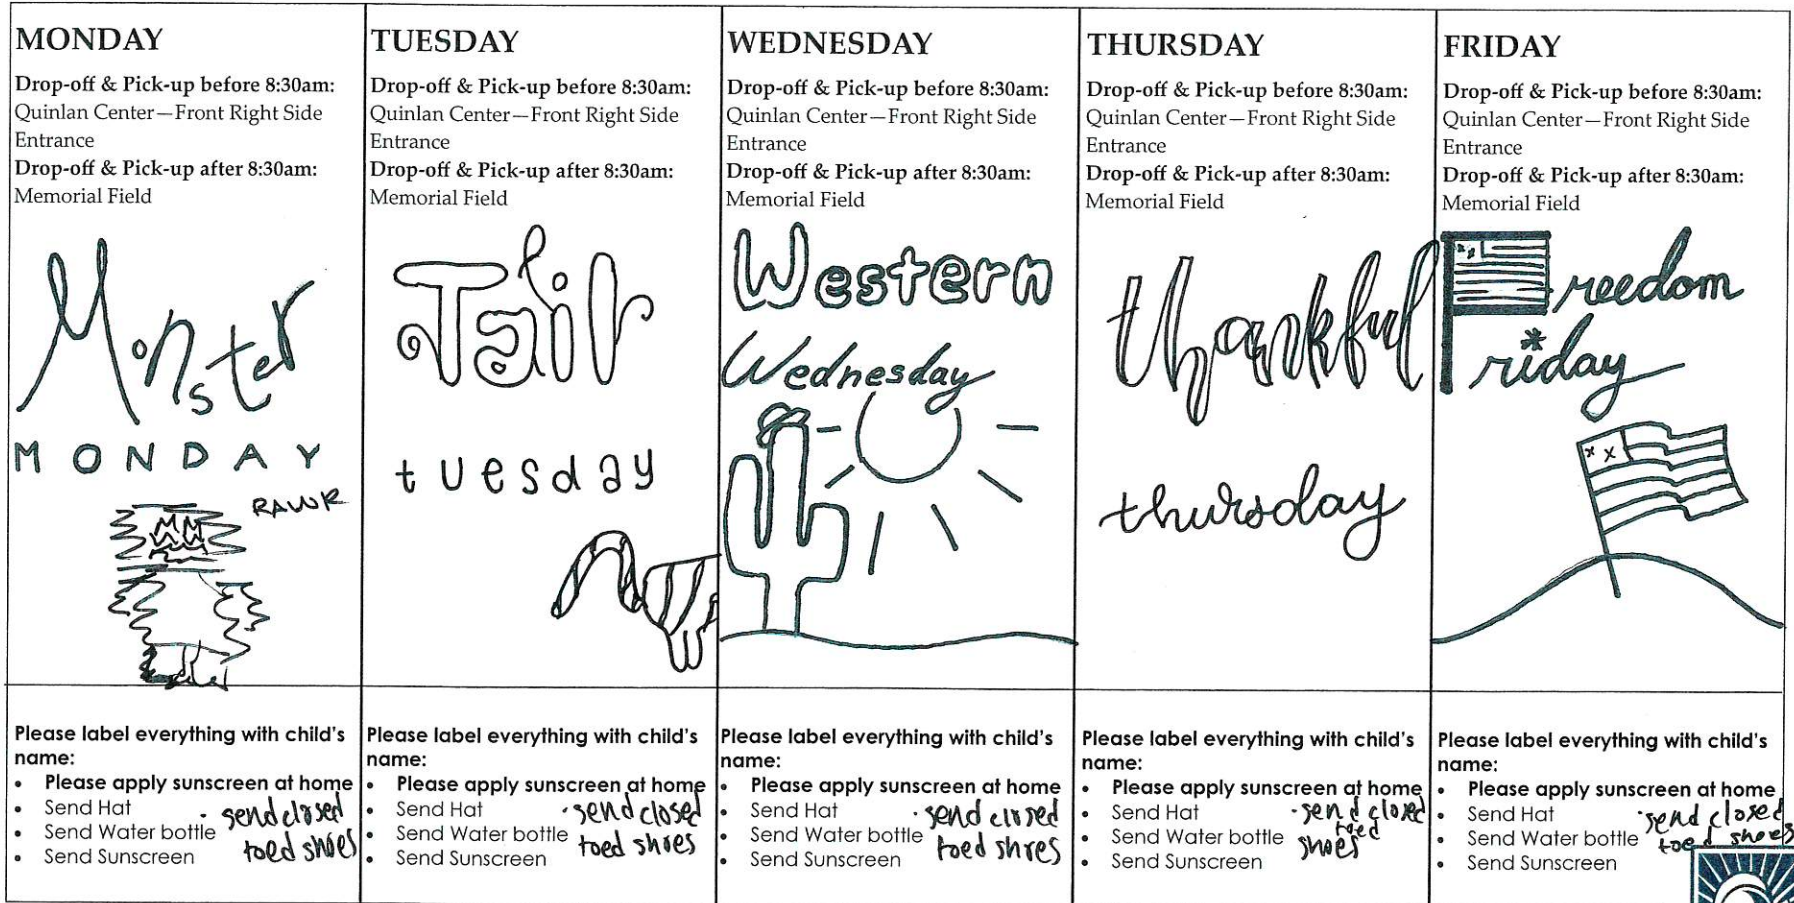 MONDAY
Drop-off & Pick-up before 8:30am:
Quinlan Center—Front Right Side
Entrance
Drop-off & Pick-up after 8:30am:
Memorial Field
Monster
MONDAY
RAWR
Please label everything with child's
name:
• Please apply sunscreen at home
• Send Hat
• Send Water bottle
• Send Sunscreen
· send closed
toed shoes
TUESDAY
Drop-off & Pick-up before 8:30am:
Quinlan Center—Front Right Side
Entrance
Drop-off & Pick-up after 8:30am:
Memorial Field
Tail
tuesday
Please label everything with child's
name:
• Please apply sunscreen at home
• Send Hat
• Send Water bottle
• Send Sunscreen
· send closed
toed shoes
WEDNESDAY
Drop-off & Pick-up before 8:30am:
Quinlan Center—Front Right Side
Entrance
Drop-off & Pick-up after 8:30am:
Memorial Field
Western
Wednesday
Please label everything with child's
name:
• Please apply sunscreen at home
• Send Hat
• Send Water bottle
• Send Sunscreen
· send closed
toed shoes
THURSDAY
Drop-off & Pick-up before 8:30am:
Quinlan Center—Front Right Side
Entrance
Drop-off & Pick-up after 8:30am:
Memorial Field
thankful
thursday
Please label everything with child's
name:
• Please apply sunscreen at home
• Send Hat
• Send Water bottle
• Send Sunscreen
· send closed
toed
shoes
FRIDAY
Drop-off & Pick-up before 8:30am:
Quinlan Center—Front Right Side
Entrance
Drop-off & Pick-up after 8:30am:
Memorial Field
reedom
riday
Please label everything with child's
name:
• Please apply sunscreen at home
• Send Hat
• Send Water bottle
• Send Sunscreen
· send closed
toed shoes